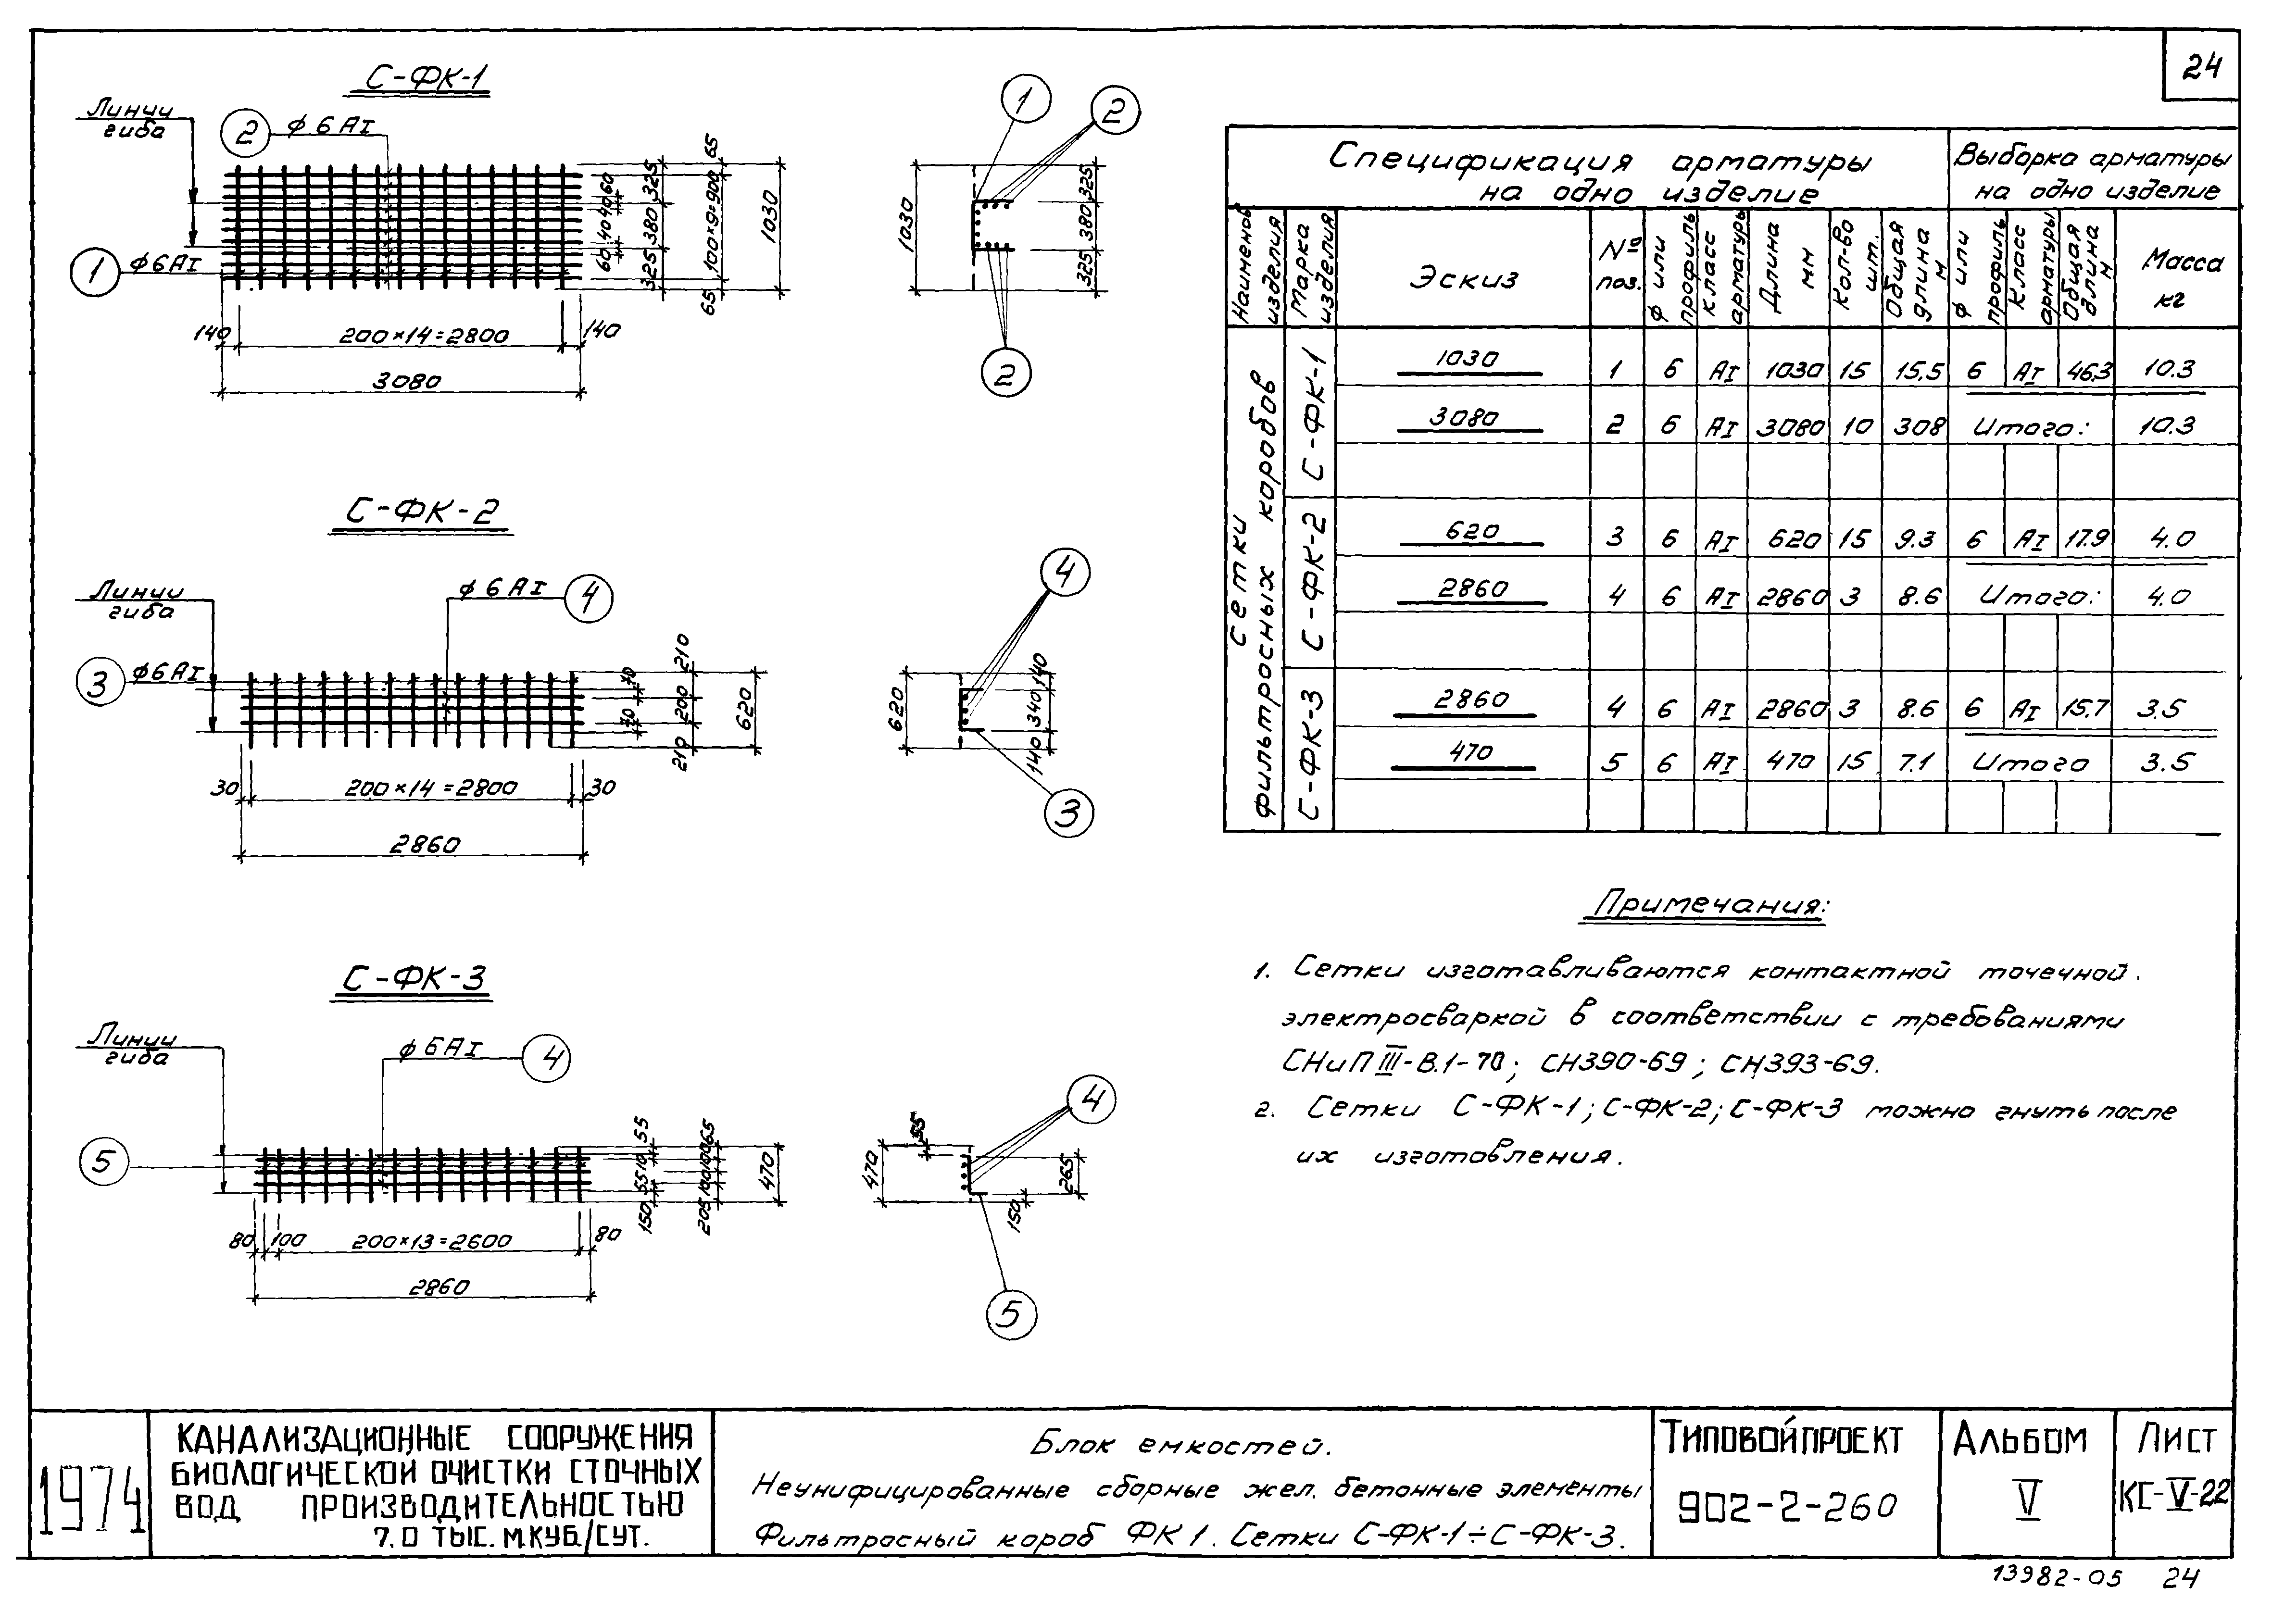 24
С-ФК-1
Линии
гиба
2
ф 6 АI
1
ф6АI
140
200×14=2800
140
3080
60
40
40
60
325
380
325
65
100×9=900
65
1030
1
2
1030
325
380
325
2
С-ФК-2
Линии
гиба
ф 6 АI
4
3
ф6АI
70
70
210
200
210
620
30
200×14=2800
30
2860
4
620
140
340
140
3
С-ФК-3
Линии
гиба
ф 6АI
4
5
55
55 10
55
150
65
100
100
205
470
80
100
200×13=2600
80
2860
4
55
470
265
150
5
Спецификация арматуры
на одно изделие
Выборка арматуры
на одно изделие
Наименов
изделия
Марка
изделия
Эскиз
№
поз.
ф или
профиль
класс
арматуры
Длина
мм
Кол-во
шт.
Общая
длина
м
ф или
профиль
Класс
арматуры
Общая
длина
м
Масса
кг
сетки
фильтросных коробов
С-ФК-1
1030 1 6 АI 1030 15 15,5 6 АI 46,3 10.3
3080 2 6 АI 3080 10 308 Итого: 10.3
С-ФК-2
620 3 6 АI 620 15 9.3 6 АI 17.9 4.0
2860 4 6 АI 2860 3 8.6 Итого: 4.0
С-ФК-3
2860 4 6 АI 2860 3 8.6 6 АI 15.7 3.5
470 5 6 АI 470 15 7.1 Итого 3.5
Примечания:
1. Сетки изготавливаются контактной точечной.
электросваркой в соответствии с требованиями
СНиП III-В.1-70; СН390-69; СН393-69.
2. Сетки С-ФК-1; С-ФК-2; С-ФК-3 можно гнуть после
их изготовления.
1974
КАНАЛИЗАЦИОННЫЕ СООРУЖЕНИЯ
БИОЛОГИЧЕСКОЙ ОЧИСТКИ СТОЧНЫХ
ВОД ПРОИЗВОДИТЕЛЬНОСТЬЮ
7,0 ТЫС. М.КУБ/СУТ.
Блок емкостей.
Неунифицированные сборные жел. бетонные элементы
Фильтросный короб ФК 1. Сетки С-ФК-1÷С-ФК-3.
ТИПОВОЙ ПРОЕКТ
902-2-260
АЛЬБОМ
V
ЛИСТ
КС-V-22
13982-05 24